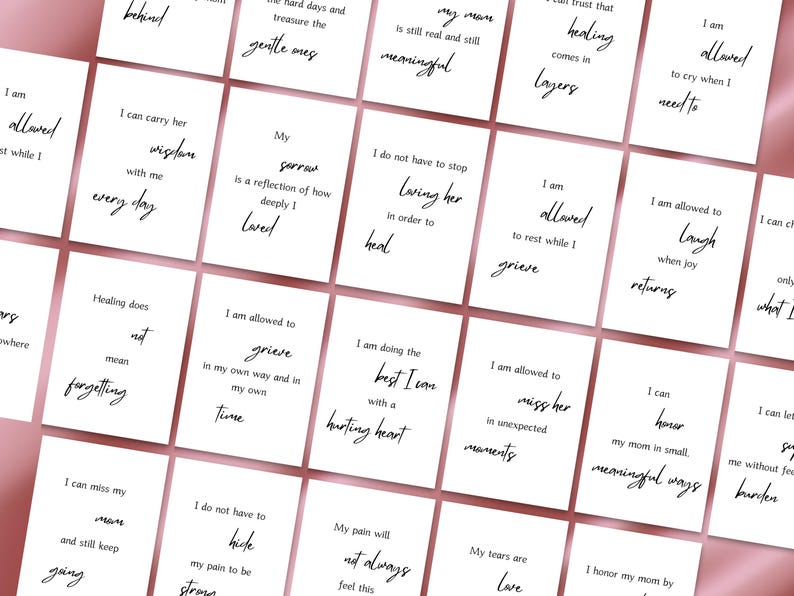 behind
the hard days and
treasure the
gentle ones
my mom
is still real and still
meaningful
can trust that
healing
comes in
layers
I am
allowed
to cry when I
need to
I am
allowed
st while I
I can carry her
wisdom
with me
every day
My
sorrow
is a reflection of how
deeply I
loved
I do not have to stop
loving her
in order to
heal
I am
allowed
to rest while I
grieve
I am allowed to
laugh
when joy
returns
I can ch
only
what I
ars
owhere
Healing does
not
mean
forgetting
I am allowed to
grieve
in my own way and in
my own
time
I am doing the
best I can
with a
hurting heart
I am allowed to
miss her
in unexpected
moments
I can
honor
my mom in small,
meaningful ways
I can let
su
me without fee
burden
I can miss my
mom
and still keep
going
I do not have to
hide
my pain to be
strong
My pain will
not always
feel this
My tears are
love
I honor my mom by